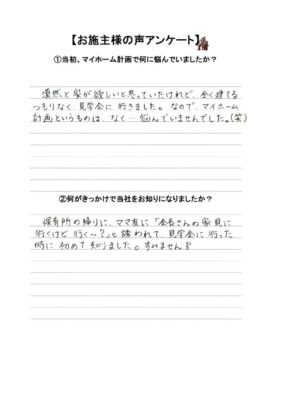 【お施主様の声アンケート】
①当初、マイホーム計画で何に悩んでいましたか？
漠然と家が欲しいと思っていたけれど、全く建てる
つもりなく、見学会に行きました。なので、マイホーム
計画というものは、なく…悩んでいませんでした。(笑)
②何がきっかけで当社をお知りになりましたか？
保育所の帰りに、ママ友に「会長さんの家見に
行くけど行く〜？」と誘われて、見学会に行った
時に初めて知りました。すみません!!